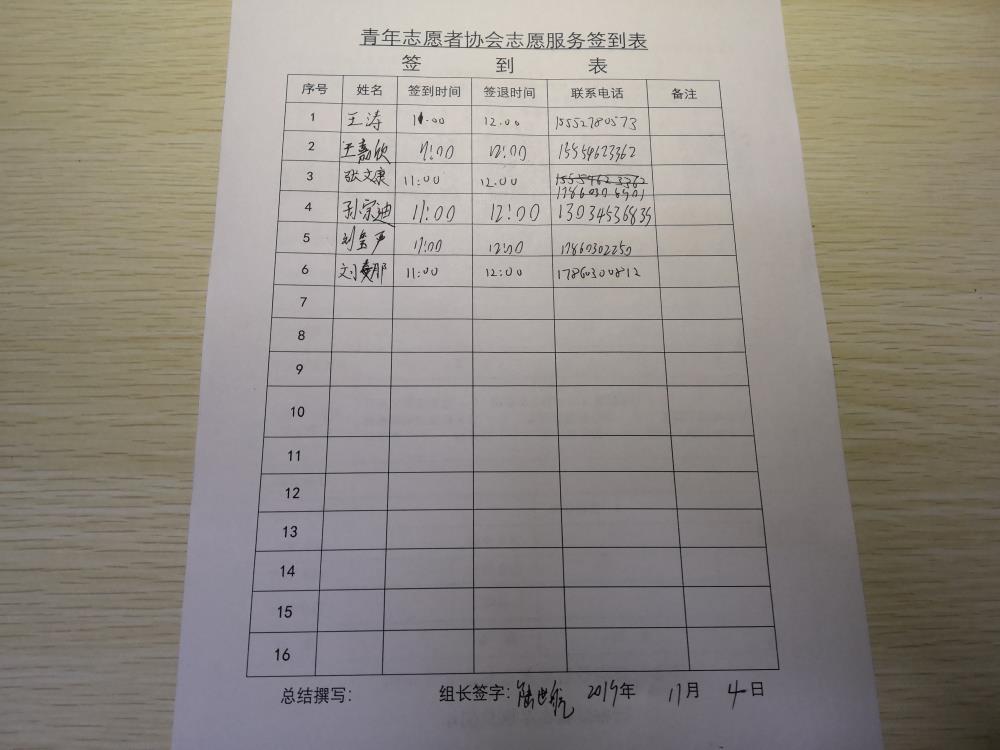 青年志愿者协会志愿服务签到表
签 到 表
序号 姓名 签到时间 签退时间 联系电话 备注
1 王涛 11.00 12.00 15552780573
2 王嘉欣 11:00 12:00 15554623362
3 张文康 11:00 12.00 15554623362
1786030
4 孙宗迪 11:00 12:00 13034536835
5 刘 11:00 12:00 17860302250
6 刘 11:00 12:00 17860300812
7
8
9
10
11
12
13
14
15
16
总结撰写: 组长签字: 陆世航 2019年 11月 4日